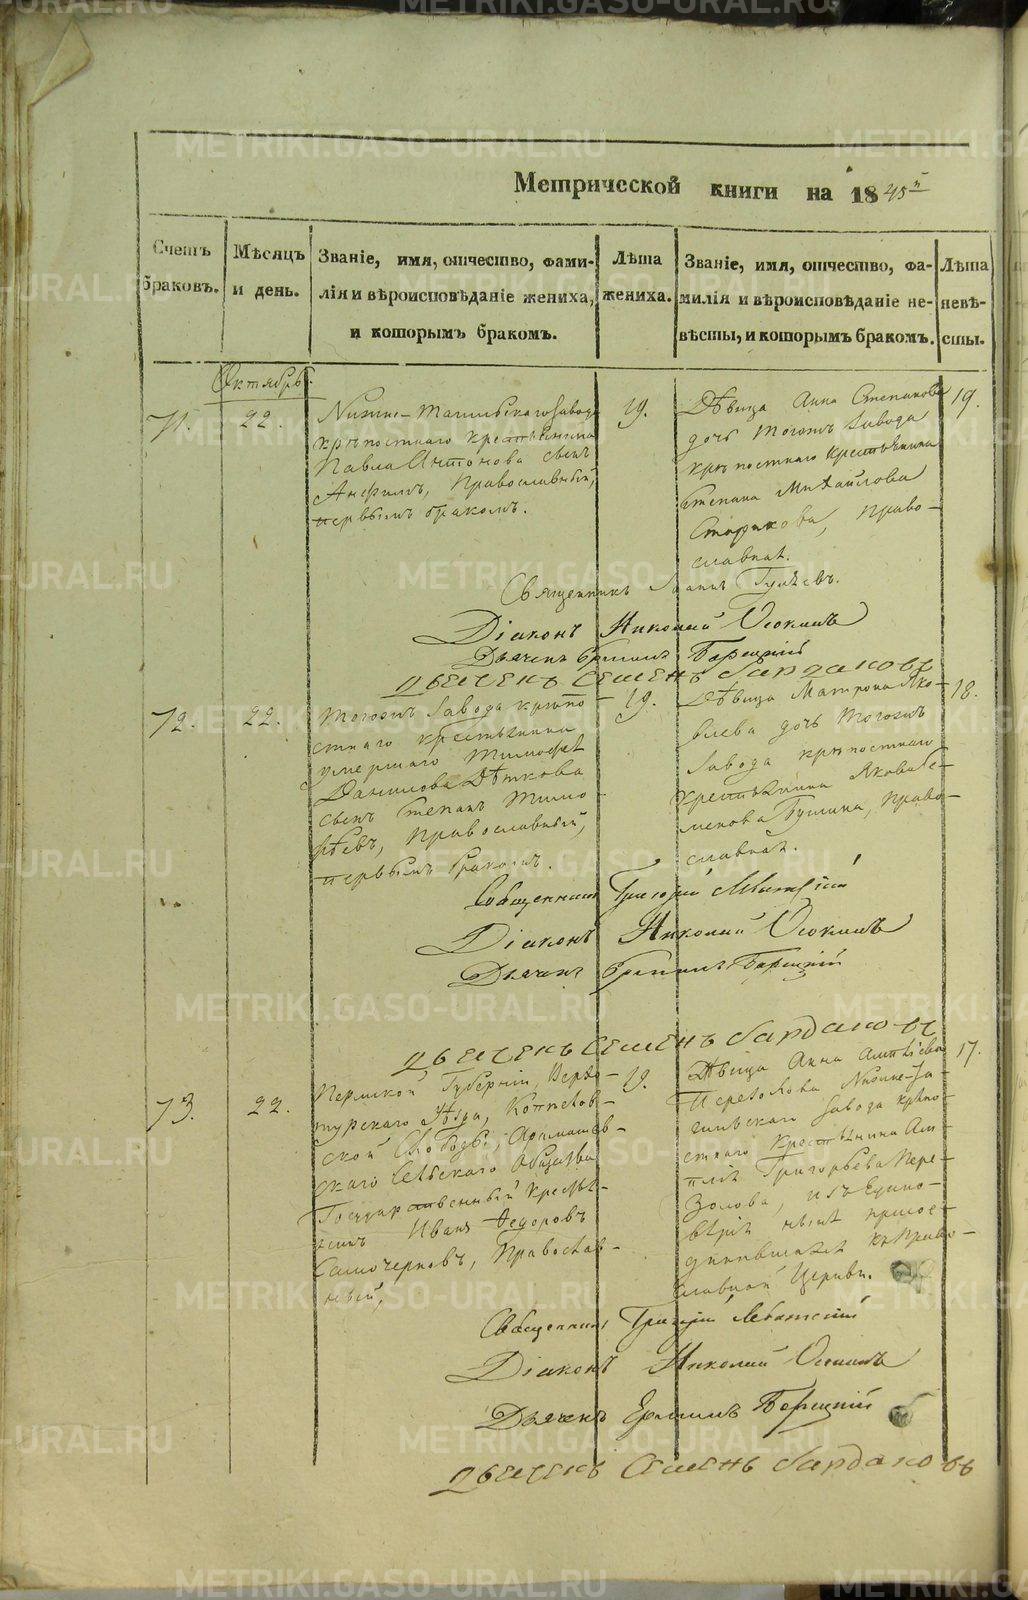 Метрической книги на 1845й
Счетъ браковъ.
Мѣсяцъ и день.
Званіе, имя, отчество, фами-
лія и вѣроисповѣданіе жениха,
и которымъ бракомъ.
Лѣта
жениха.
Званіе, имя, отчество, фа-
милія и вѣроисповѣданіе не-
вѣсты, и которымъ бракомъ.
Лѣта
невѣ-
сты.
Октябрь.
71.
22.
Нижне-Тагильскаго завода
крѣпостнаго крестьянина
Павла Антонова сынъ
Анфимъ, Православный,
первымъ бракомъ.
19.
Дѣвица Анна Степанова
дочь тогожъ завода
крѣпостнаго крестьянина
Степана Михайлова
право-
славная.
19.
Священникъ Іоаннъ
Діаконъ Николай Осокинъ
Дьячекъ Ермилъ Борецкій
Семенъ Бардаковъ
72.
22.
Тогожъ завода крѣпо-
стнаго крестьянина
умершаго Тимофея
Данилова Дѣткова
сынъ Степанъ Тимо-
фѣевъ, Православный,
первымъ бракомъ.
19.
Дѣвица Матрона Яко-
влева дочь тогожъ
завода крѣпостнаго
крестьянина Якова Се-
менова право-
славная.
18.
Священникъ Григорій
Діаконъ Николай Осокинъ
Дьячекъ Ермилъ Борецкій
Семенъ Бардаковъ
73.
22.
Пермской Губерніи, Верхо-
турскаго Уѣзда,
ской Слободы
скаго Сельскаго Общества
Государственный Кресть-
янинъ Иванъ Федоровъ
Самочерновъ, Православ-
ный,
19.
Дѣвица Анна
Нижне-Та-
гильскаго завода крѣпо-
стнаго крестьянина
Григорьева Пере-
золова, изъ Едино-
вѣрія нынѣ присое-
динившаяся къ Право-
славной Церкви.
17.
Священникъ Григорій
Діаконъ Николай Осокинъ
Дьячекъ Ермилъ Борецкій
Семенъ Бардаковъ
METRIKI.GASO-URAL.RU